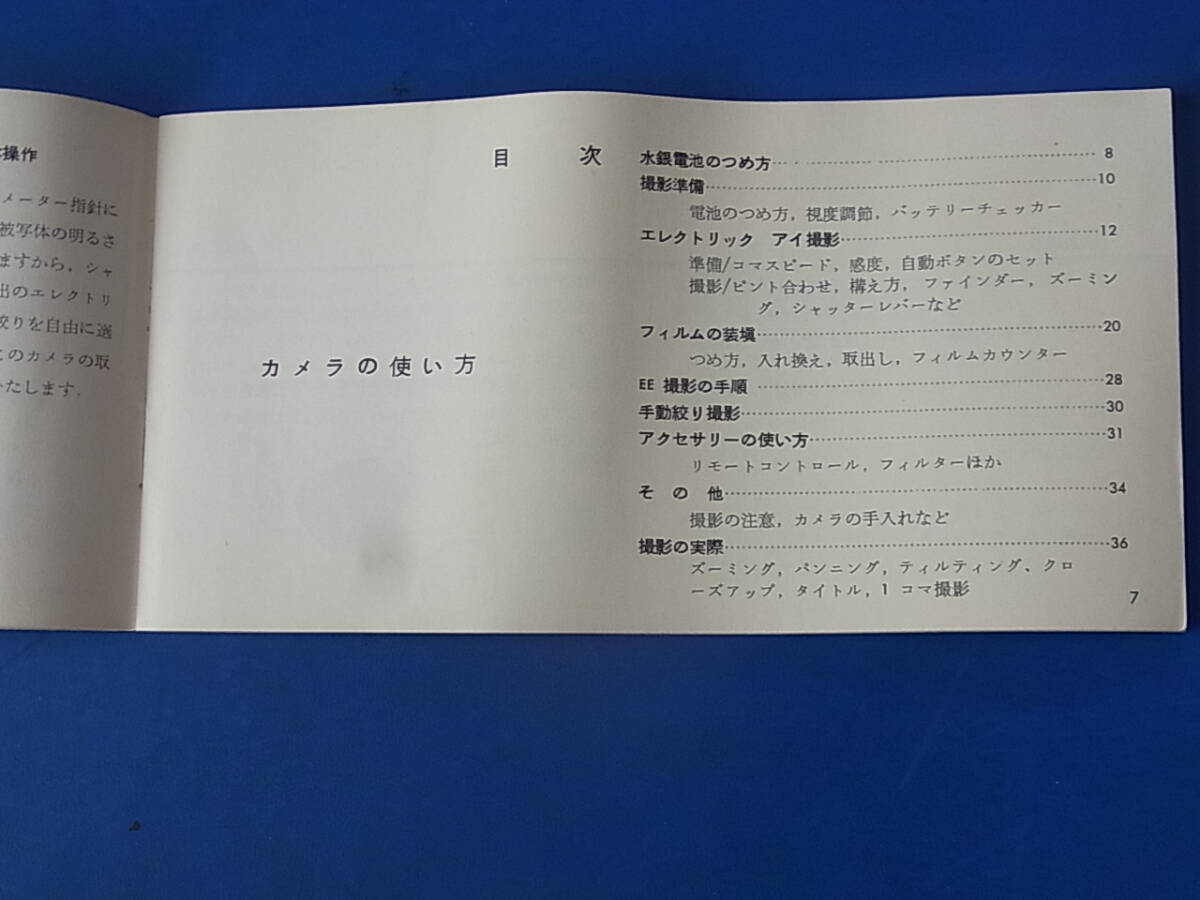 操作
メーター指針に
被写体の明るさ
ますから，シャ
出のエレクトリ
絞りを自由に選
このカメラの取
いたします．
カメラの使い方
目　次
水銀電池のつめ方…………………………………… 8
撮影準備……………………………………………10
電池のつめ方，視度調節，バッテリーチェッカー
エレクトリック　アイ撮影…………………………12
準備/コマスピード，感度，自動ボタンのセット
撮影/ピント合わせ，構え方，ファインダー，ズーミン
グ，シャッターレバーなど
フィルムの装塡……………………………………20
つめ方，入れ換え，取出し，フィルムカウンター
EE 撮影の手順 ……………………………………28
手動絞り撮影………………………………………30
アクセサリーの使い方……………………………31
リモートコントロール，フィルターほか
そ　の　他…………………………………………34
撮影の注意，カメラの手入れなど
撮影の実際…………………………………………36
ズーミング，パンニング，ティルティング、クロ
ーズアップ，タイトル，1 コマ撮影
7